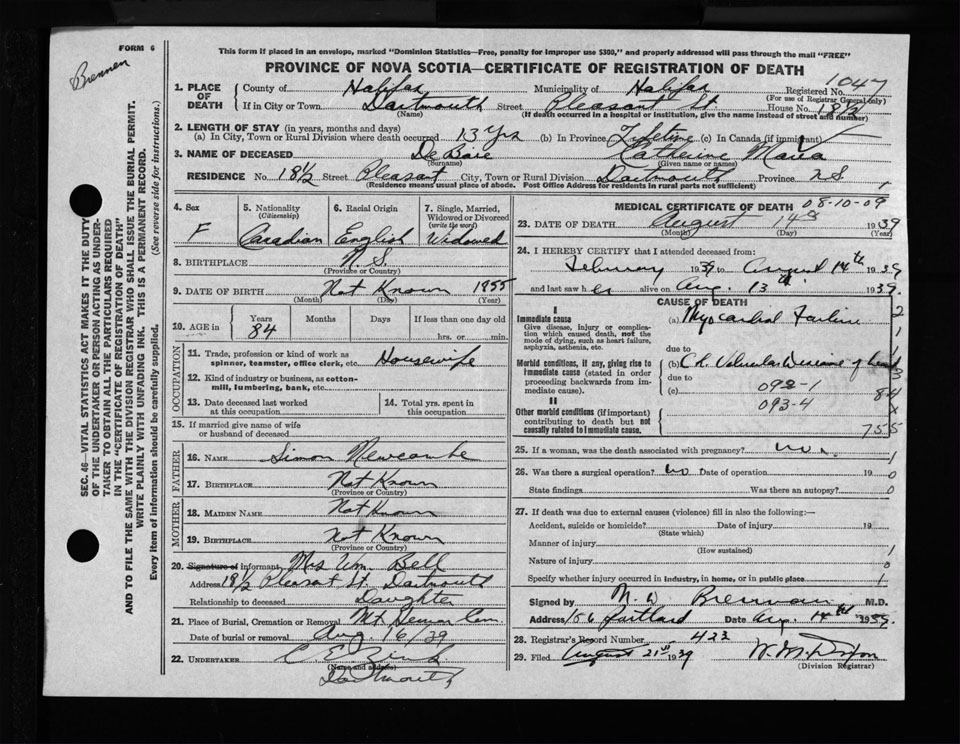 FORM 6
Brennen
This form if placed in an envelope, marked "Dominion Statistics—Free, penalty for improper use $300," and properly addressed will pass through the mail "FREE"
PROVINCE OF NOVA SCOTIA—CERTIFICATE OF REGISTRATION OF DEATH
1047
1. PLACE OF DEATH County of Halifax Municipality of Halifax Registered No.
(For use of Registrar General only)
If in City or Town Dartmouth Street Pleasant St. House No. 18½
(Name) (If death occurred in a hospital or institution, give the name instead of street and number)
2. LENGTH OF STAY (in years, months and days)
(a) In City, Town or Rural Division where death occurred 13 Yrs (b) In Province Lifetime (c) In Canada (if immigrant)
3. NAME OF DECEASED De Baie Katherine Maria
(Surname) (Given name or names)
RESIDENCE No. 18½ Street Pleasant City, Town or Rural Division Dartmouth Province N.S.
(Residence means usual place of abode. Post Office Address for residents in rural parts not sufficient)
4. Sex F
5. Nationality (Citizenship) Canadian
6. Racial Origin English
7. Single, Married, Widowed or Divorced (write the word) Widowed
8. BIRTHPLACE N.S.
(Province or Country)
9. DATE OF BIRTH Not Known 1855
(Month) (Day) (Year)
10. AGE in Years 84 Months Days If less than one day old
hrs. or min.
OCCUPATION
11. Trade, profession or kind of work as spinner, teamster, office clerk, etc. Housewife
12. Kind of industry or business, as cotton-mill, lumbering, bank, etc.
13. Date deceased last worked at this occupation
14. Total yrs. spent in this occupation
15. If married give name of wife or husband of deceased
FATHER
16. NAME Simon Newcombe
17. BIRTHPLACE Not Known
(Province or Country)
MOTHER
18. MAIDEN NAME Not Known
19. BIRTHPLACE Not Known
(Province or Country)
20. Signature of informant Mrs Wm. Bell
Address 18½ Pleasant St. Dartmouth
Relationship to deceased Daughter
21. Place of Burial, Cremation or Removal Mt Hermon Cem.
Date of burial or removal Aug. 16/39
22. UNDERTAKER C. E. Zink
(Name and address)
Dartmouth
MEDICAL CERTIFICATE OF DEATH 08-10-09
23. DATE OF DEATH August 14th 1939
(Month) (Day) (Year)
24. I HEREBY CERTIFY that I attended deceased from:
February 1939 to August 14th 1939
and last saw her alive on Aug. 13th 1939.
CAUSE OF DEATH
I
Immediate cause
Give disease, injury or complication which caused death, not the mode of dying, such as heart failure, asphyxia, asthenia, etc.
(a) Myocardial Failure
due to
Morbid conditions, if any, giving rise to immediate cause (stated in order proceeding backwards from immediate cause).
(b) Ch. Valvular
due to
092-1
(c)
093-4
II
Other morbid conditions (if important) contributing to death but not causally related to immediate cause.
2
1
1
3
84
X
755
25. If a woman, was the death associated with pregnancy? No. 1
26. Was there a surgical operation? No Date of operation 19 0
State findings Was there an autopsy? 0
27. If death was due to external causes (violence) fill in also the following:—
Accident, suicide or homicide? Date of injury 19
(State which)
Manner of injury 1
(How sustained)
Nature of injury 0
Specify whether injury occurred in industry, in home, or in public place 1
Signed by M. D. Brennan M.D.
Address 156 Portland Date Aug. 14th 1939.
28. Registrar's Record Number 423
29. Filed August 21st 1939 W. M. Dixon
(Division Registrar)
SEC. 46—VITAL STATISTICS ACT MAKES IT THE DUTY
OF THE UNDERTAKER OR PERSON ACTING AS UNDER-
TAKER TO OBTAIN ALL THE PARTICULARS REQUIRED
IN THE "CERTIFICATE OF REGISTRATION OF DEATH"
AND TO FILE THE SAME WITH THE DIVISION REGISTRAR WHO SHALL ISSUE THE BURIAL PERMIT.
WRITE PLAINLY WITH UNFADING INK. THIS IS A PERMANENT RECORD.
Every item of information should be carefully supplied. (See reverse side for instructions.)